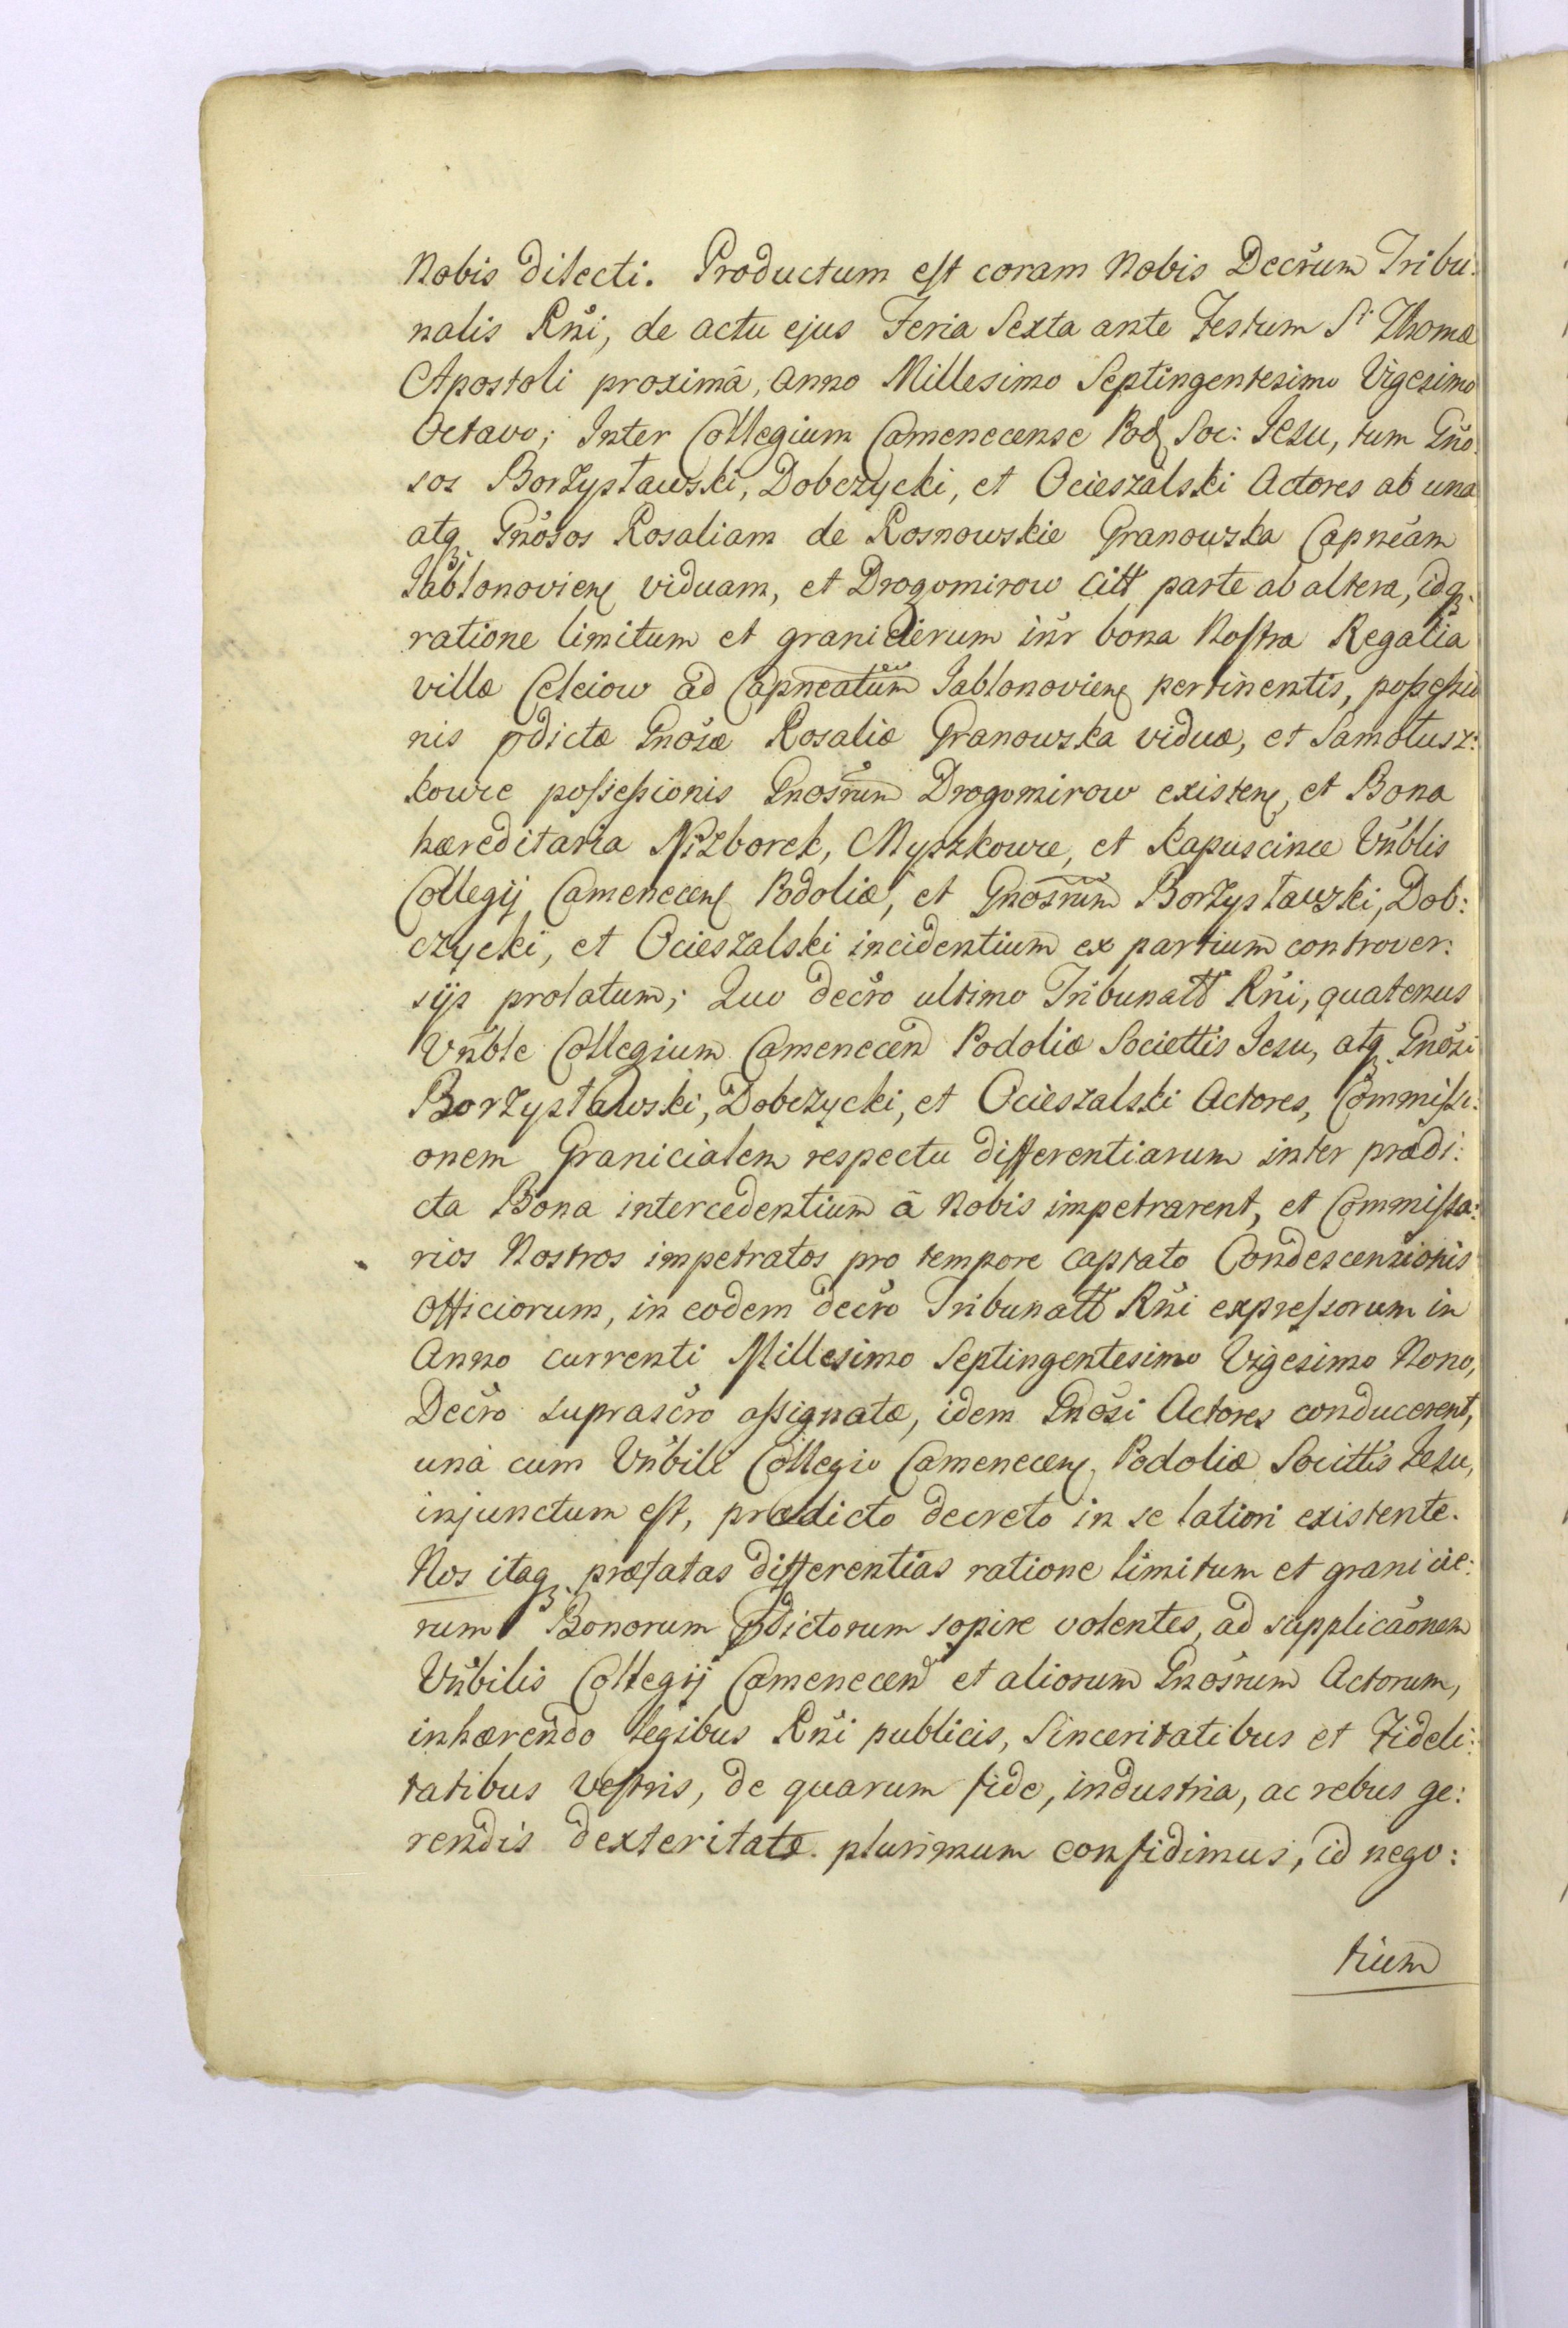 Nobis dilecti. Productum est coram Nobis Decrum Tribu:
nalis Rñi, de actu ejus Feria Sexta ante Festum Sti Thomæ
Apostoli proximâ, Anno Millesimo Septingentesimo Vigesimo
Octavo; Inter Collegium Camenecense Pod Soc: Jesu, tum Gño:
sos Borzysławski, Dobczycki, et Ocieszalski Actores ab una
atq Gnõsos Rosaliam de Rosnowskie Granowska Capneam
Jabłonovien viduam, et Drogomirow Citt parte ab altera, idq
ratione limitum et granicierum inr bona Nostra Regalia
villæ Celeiow ad Capneatum Jablonovien pertinentis, possessio
nis pdictæ Gnosæ Rosaliæ Granowska viduæ, et Samołusz:
kowce possessionis Gnosrum Drogomirow existen, et Bona
hæreditaria Niżborek, Myszkowce, et Kapuscince Vnblis
Collegij Camenecen Podoliæ, et Gnosrum Borzysławski, Dob:
czycki, et Ocieszalski incidentium ex partium controver:
sijs prolatum; Quo decro ultimo Tribunatt Rñi, quatenus
Vnble Collegium Camenecen Podoliæ Societtis Jesu, atq Gnosi
Borzysławski, Dobczycki, et Ocieszalski Actores, Commissi:
onem Granicialem respectu differentiarum inter prædi:
cta Bona intercedentium â Nobis impetrarent, et Commissa:
rios Nostros impetratos pro tempore captato Condescensionis
officiorum, in eodem decro Tribunatt Rñi expressorum in
Anno currenti Millesimo Septingentesimo Vigesimo Nono,
Decro suprascro assignatæ, idem Gnosi Actores conducerent,
unà cum Vnbili Collegio Camenecen Podoliæ Socittis Jesu,
injunctum est, prædicto decreto in se latiori existente.
Nos itaq præfatas differentias ratione limitum et granicie:
rum Bonorum pdictorum sopire volentes, ad supplicaonem
Vnbilis Collegij Camenecen et aliorum Gnosrum Actorum,
inhærendo legibus Rñi publicis, Sinceritatibus et Fideli:
tatibus Vestris, de quarum fide, industria, ac rebus ge:
rendis dexteritate plurimum confidimus, id nego:
tium